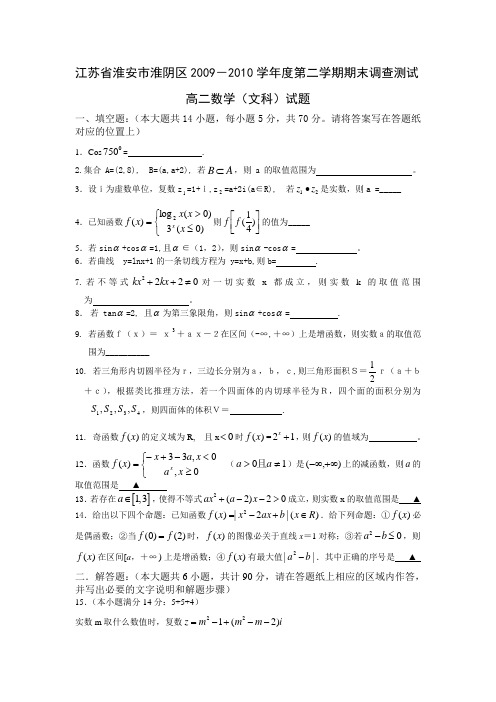 江苏省淮安市淮阴区2009－2010学年度第二学期期末调查测试
高二数学（文科）试题
一、填空题：（本大题共14小题，每小题5分，共70分。请将答案写在答题纸
对应的位置上）
1．Cos 750⁰= .
2.集合 A=(2,8), B=(a,a+2), 若 B⊂A，则 a 的取值范围为 。
3．设i为虚数单位，复数z₁=1+i,z₂=a+2i(a∈R), 若z₁•z₂是实数，则a =_____
4．已知函数 f(x)={log₂x(x>0) 3ˣ(x≤0) 则 f[f(1/4)]的值为_____
5．若sinα+cosα=1,且α∈(1，2)，则sinα-cosα= 。
6．若曲线 y=lnx+1的一条切线方程为 y=x+b,则b= .
7.若不等式kx²+2kx+2≠0对一切实数x都成立，则实数k的取值范围
为 。
8. 若 tanα=2, 且α为第三象限角，则sinα+cosα= .
9. 若函数ｆ（ｘ）＝ ｘ³＋ａｘ－２在区间（-∞,＋∞）上是增函数，则实数ａ的取值范
围为__________
10. 若三角形内切圆半径为ｒ，三边长分别为ａ，ｂ，ｃ,则三角形面积Ｓ＝1/2ｒ（ａ＋ｂ
＋ｃ），根据类比推理方法，若一个四面体的内切球半径为Ｒ，四个面的面积分别为
S₁,S₂,S₃,S₄，则四面体的体积Ｖ＝ .
11. 奇函数f(x)的定义域为R, 且x<0时f(x)=2ˣ+1，则f(x)的值域为 。
12．函数 f(x)={−x+3−3a,x<0 aˣ,x≥0 （a>0且a≠1）是(−∞,+∞)上的减函数，则a的
取值范围是 ▲
13.若存在a∈[1,3]，使得不等式ax²+(a−2)x−2>0成立，则实数x的取值范围是 ▲
14．给出以下四个命题：已知函数f(x)=|x²−2ax+b|(x∈R)．给下列命题：①f(x)必
是偶函数；②当f(0)=f(2)时，f(x)的图像必关于直线x＝1对称；③若a²−b≤0，则
f(x)在区间[a，＋∞）上是增函数；④f(x)有最大值|a²−b|．其中正确的序号是 ▲
二．解答题：(本大题共6小题，共计90分，请在答题纸上相应的区域内作答，
并写出必要的文字说明和解题步骤)
15．（本小题满分14分：5+5+4）
实数m取什么数值时，复数z=m²−1+(m²−m−2)i